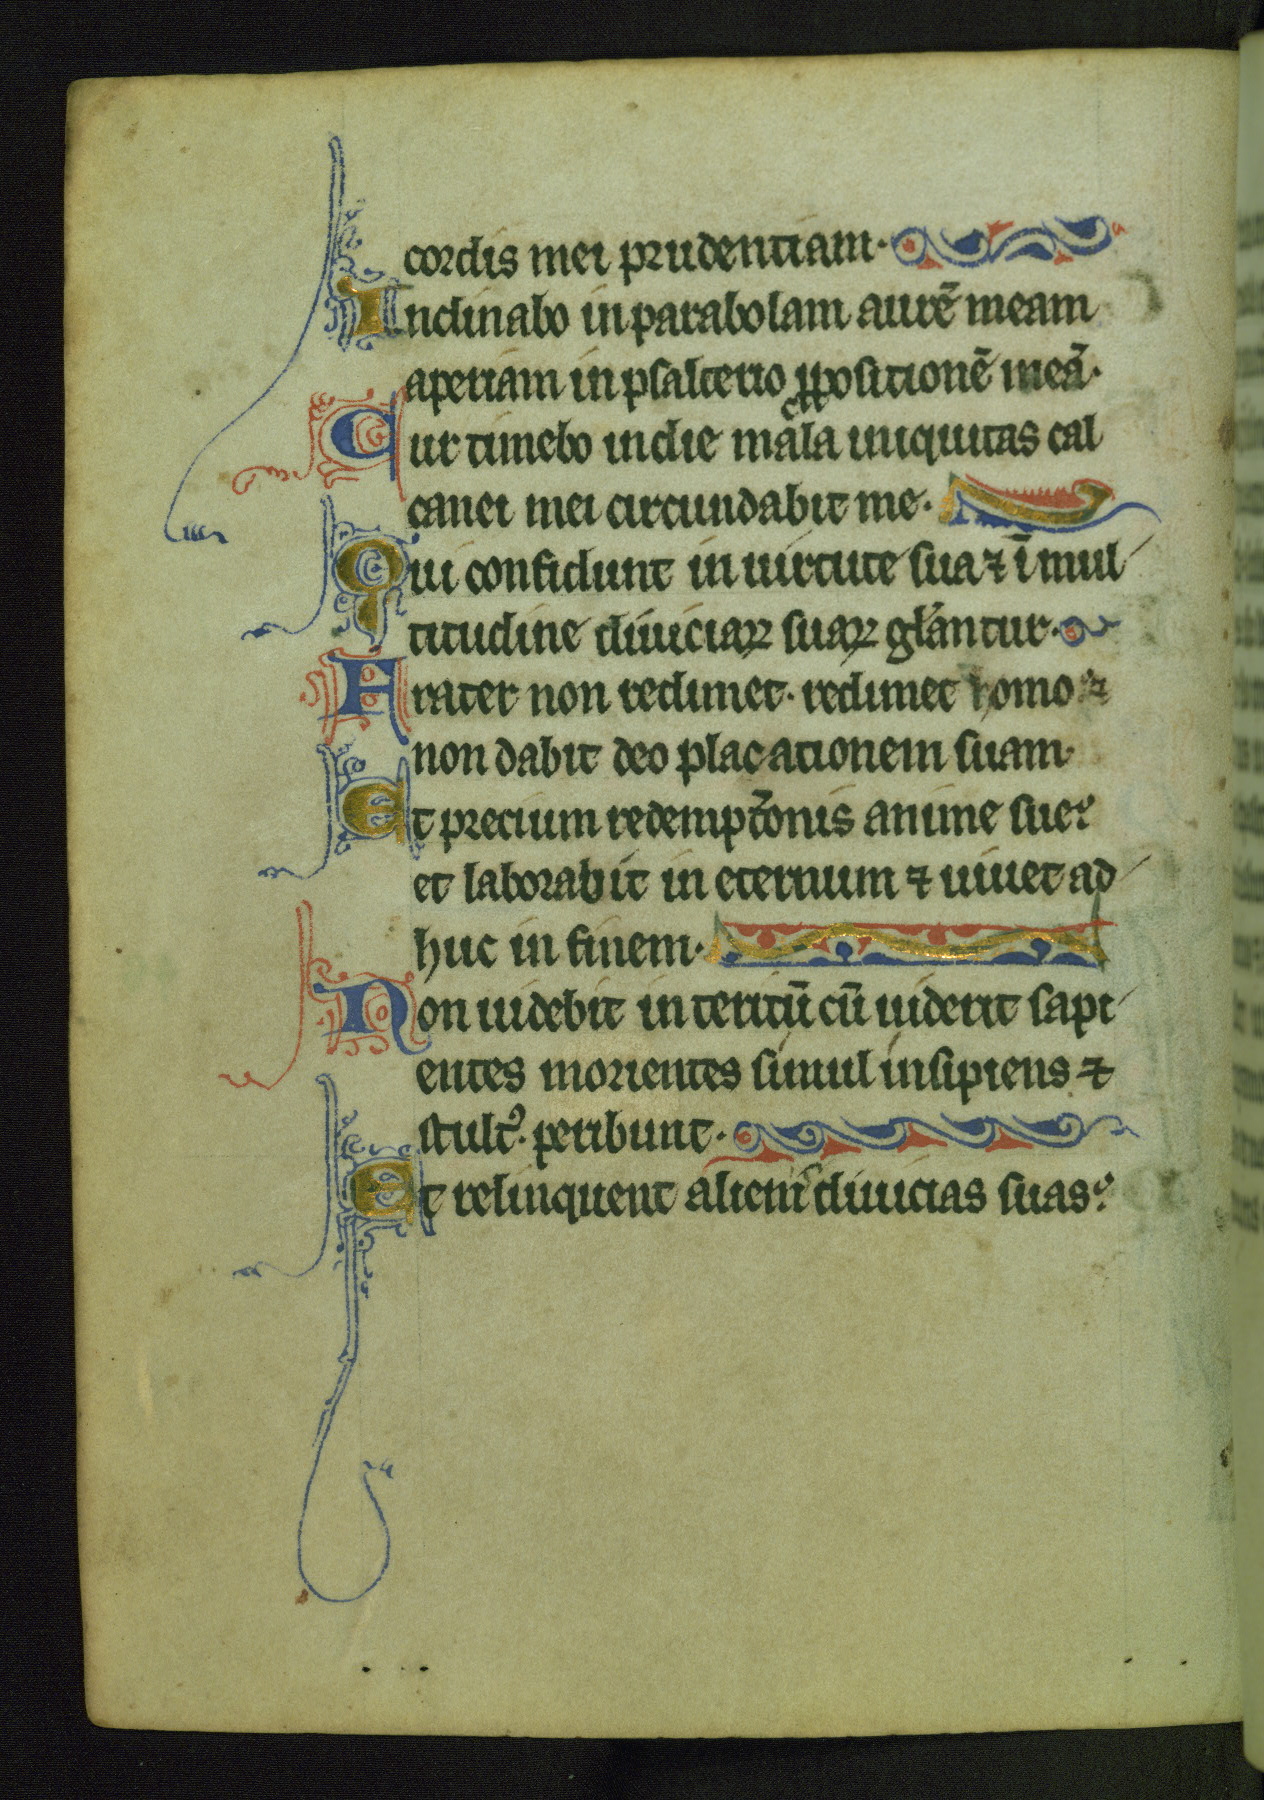 cordis mei prudentiam·
Inclinabo in parabolam aurē meam
aperiam in psalterio ꝓpositionē meā·
Cur timebo in die mala iniquitas cal
canei mei circundabit me·
Qui confidunt in uirtute sua ⁊ ī mul
titudine diuiciaꝝ suaꝝ gl̄antur·
Frater non redimet· redimet homo ⁊
non dabit deo placationem suam·
Et precium redempt̄onis anime sue
et laborabit in eternum ⁊ uiuet ad
huc in finem·
Non uidebit interitū cū uiderit sapi
entes morientes simul insipiens ⁊
stultꝰ· peribunt·
Et relinquent alienis diuicias suas